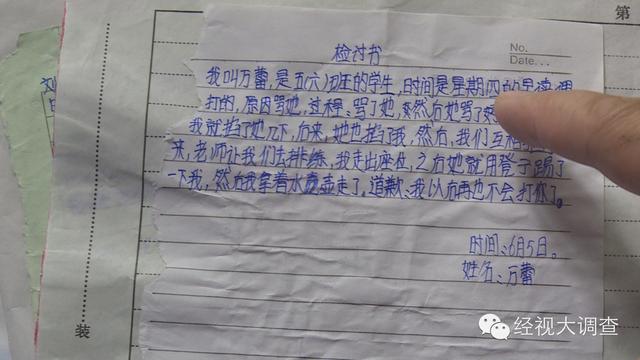 第
检讨书
No.
Date...
我叫万蕾,是五(六)班的学生,时间是星期四的早读课
打的,原因骂她,过程:骂了她,然后她骂了
我就挡了她一下,后来,她也挡了我,然后,我们互相
来,老师让我们去排练,我走出座位,之后她就用凳子踢了
一下我,然后我拿着水壶走了。道歉:我以后再也不会打你了。
时间:6月5日。
姓名:万蕾
装
经视大调查